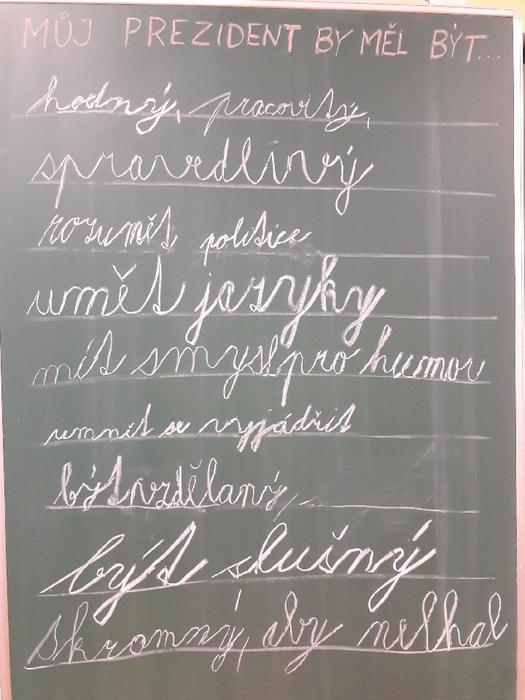 MŮJ PREZIDENT BY MĚL BÝT...
hodný, pracovitý,
spravedlivý
rozumět politice
umět jazyky
mít smysl pro humor
umnět se vyjádřit
být vzdělaný,
být slušný
skromný, aby nelhal